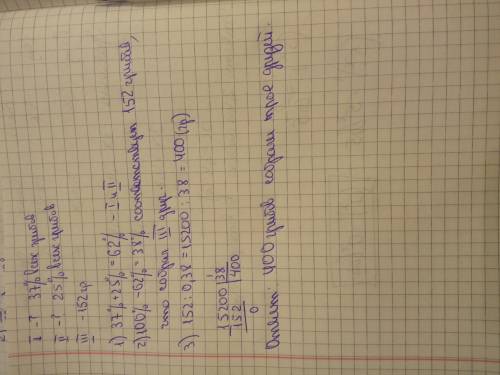 I - ? 37% всех грибов
II - ? 25% всех грибов
III - 152 гр
1) 37% + 25% = 62% - I и II
2) 100% - 62% = 38% соответствует 152 грибам,
что собрал III друг.
3) 152 : 0,38 = 15200 : 38 = 400 (гр)
15200 | 38
152 | 400
0
Ответ: 400 грибов собрали трое друзей.